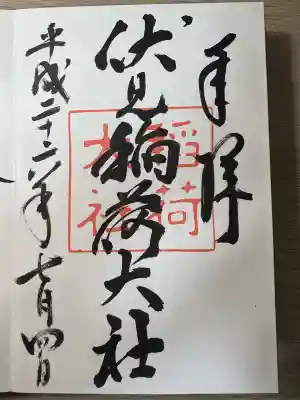 奉拝
伏見稲荷大社
稲荷
大社
平成二十六年七月四日